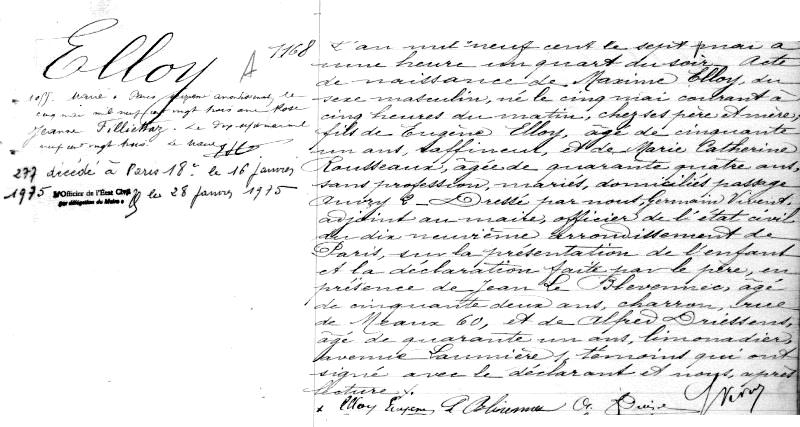 Elloy
A 1168
1055. Marié à Paris arrondissement, le
cinq mai mil neuf cent vingt trois avec Rose
Jeanne Le
neuf cent vingt trois. Le
277 décédé à Paris 18e le 16 janvier
1975
L'Officier de l'État Civil
par délégation du Maire
le 28 janvier 1975
L'an mil neuf cent le sept mai à
une heure un quart du soir. Acte
de naissance de Maxime Elloy, du
sexe masculin, né le cinq mai courant à
cinq heures du matin, chez ses père et mère,
fils de Eugène Elloy, âgé de cinquante
un ans, raffineur, et de Marie Catherine
Rousseaux, âgée de quarante quatre ans,
sans profession, mariés, domiciliés passage
2 - Dressé par nous, Germain Vivient,
adjoint au maire, officier de l'état civil
du dix neuvième arrondissement de
Paris, sur la présentation de l'enfant
et la déclaration faite par le père, en
présence de Jean Le Blevennec, âgé
de cinquante deux ans, charron, rue
de Meaux 60, et de Alfred Driessens,
âgé de quarante un ans, limonadier,
avenue Laumière 1, témoins qui ont
signé avec le déclarant et nous, après
lecture.
Elloy Eugène